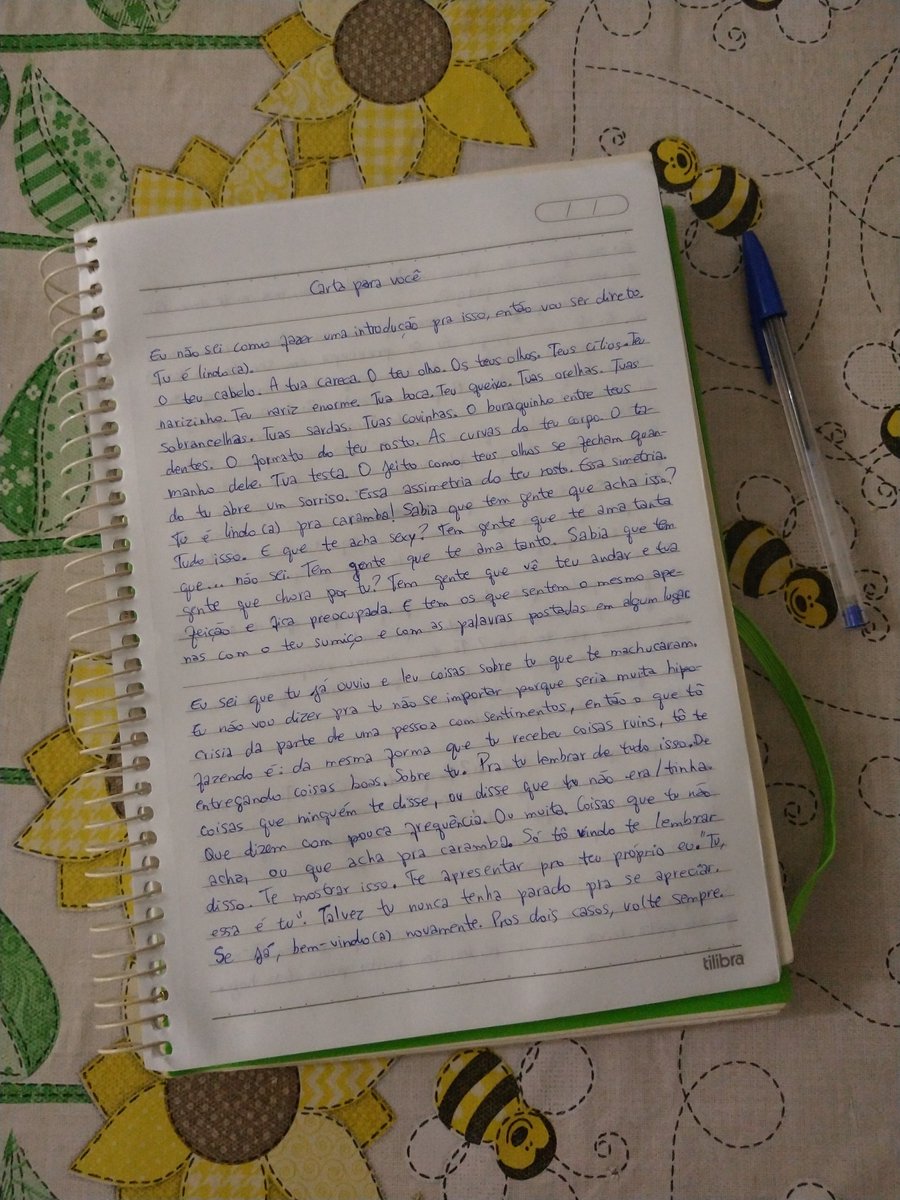 Carta para você
Eu não sei como fazer uma introdução pra isso, então vou ser direto.
Tu é lindo(a).
O teu cabelo. A tua careca. O teu olho. Os teus olhos. Teus cílios. Teu
narizinho. Teu nariz enorme. Tua boca. Teu queixo. Tuas orelhas. Tuas
sobrancelhas. Tuas sardas. Tuas covinhas. O buraquinho entre teus
dentes. O formato do teu rosto. As curvas do teu corpo. O ta-
manho dele. Tua testa. O jeito como teus olhos se fecham quan-
do tu abre um sorriso. Essa assimetria do teu rosto. Essa simetria.
Tu é lindo(a) pra caramba! Sabia que tem gente que acha isso?
Tudo isso. E que te acha sexy? Tem gente que te ama tanta
que... não sei. Tem gente que te ama tanto. Sabia que tem
gente que chora por tu? Tem gente que vê teu andar e tua
feição e fica preocupada. E tem os que sentem o mesmo ape-
nas com o teu sumiço e com as palavras postadas em algum lugar
Eu sei que tu já ouviu e leu coisas sobre tu que te machucaram.
E não vou dizer pra tu não se importar porque seria muita hipo-
crisia da parte de uma pessoa com sentimentos, então o que tô
fazendo é: da mesma forma que tu recebeu coisas ruins, tô te
entregando coisas boas. Sobre tu. Pra tu lembrar de tudo isso. De
coisas que ninguém te disse, ou disse que tu não era/tinha.
Que dizem com pouca frequência. Ou muita. Coisas que tu não
acha, ou que acha pra caramba. Só tô vindo te lembrar
disso. Te mostrar isso. Te apresentar pro teu próprio eu. "Tu,
essa é tu". Talvez tu nunca tenha parado pra se apreciar.
Se já, bem-vindo(a) novamente. Pros dois casos, volte sempre.
tilibra